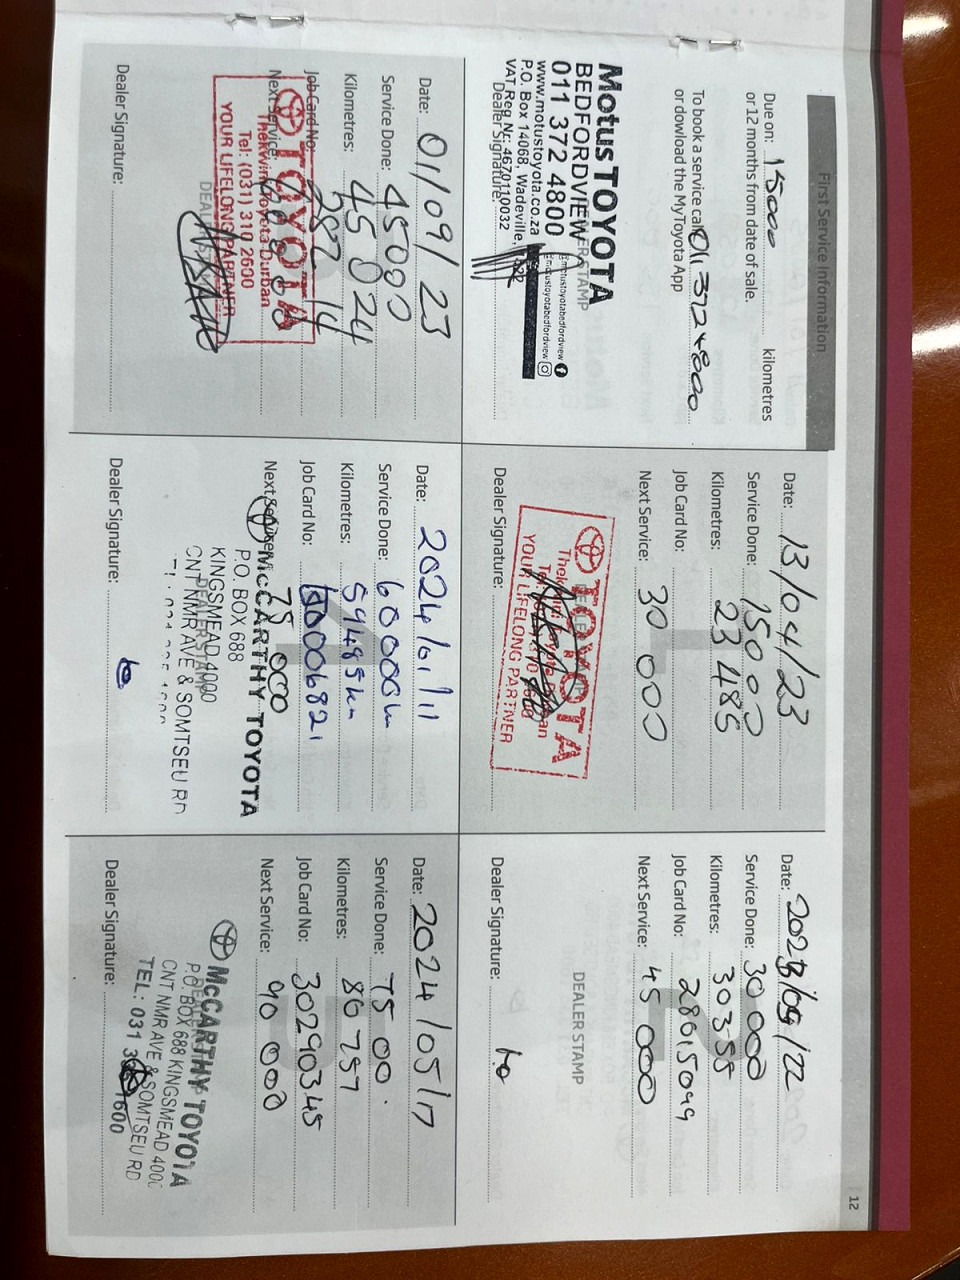 12
First Service Information
Due on: 15000 kilometres
or 12 months from date of sale.
To book a service call 011 372 4800
or dowload the MyToyota App
Motus TOYOTA
BEDFORDVIEW
011 372 4800
www.motustoyota.co.za
P.O. Box 14068, Wadeville,
VAT Reg Nr: 4670110032
motustoyotabedfordview
motustoyotabedfordview
Dealer Signature:
Date: 13/04/23
Service Done: 15000
Kilometres: 23485
Job Card No:
Next Service: 30 000
TOYOTA
YOUR LIFELONG PARTNER
Dealer Signature:
Date:
Service Done: 30 000
Kilometres: 30358
Job Card No: 28015099
Next Service: 45 000
DEALER STAMP
Dealer Signature:
Date: 01/09/23
Service Done: 45000
Kilometres: 45024
Job Card No:
Next Service:
TOYOTA
Thekwini Toyota Durban
Tel: (031) 310 2600
YOUR LIFELONG PARTNER
Dealer Signature:
Date: 2024/01/11
Service Done: 60000km
Kilometres: 59485km
Job Card No:
Next Service: 75 000
McCARTHY TOYOTA
P.O. BOX 688
KINGSMEAD 4000
CNT NMR AVE & SOMTSEU RD
DEALER STAMP
Dealer Signature:
Date: 2024/05/17
Service Done: 75 00.
Kilometres: 80757
Job Card No: 30290345
Next Service: 90 000
McCARTHY TOYOTA
P.O. BOX 688 KINGSMEAD 4000
CNT NMR AVE & SOMTSEU RD
TEL: 031
Dealer Signature: